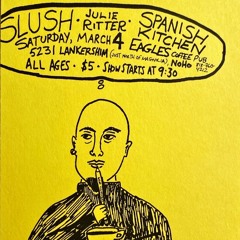 SLUSH · JULIE RITTER · SPANISH KITCHEN
SATURDAY, MARCH 4 EAGLES COFFEE PUB
5231 LANKERSHIM (JUST NORTH OF MAGNOLIA) NOHO
ALL AGES · $5 · SHOW STARTS AT 9:30
8